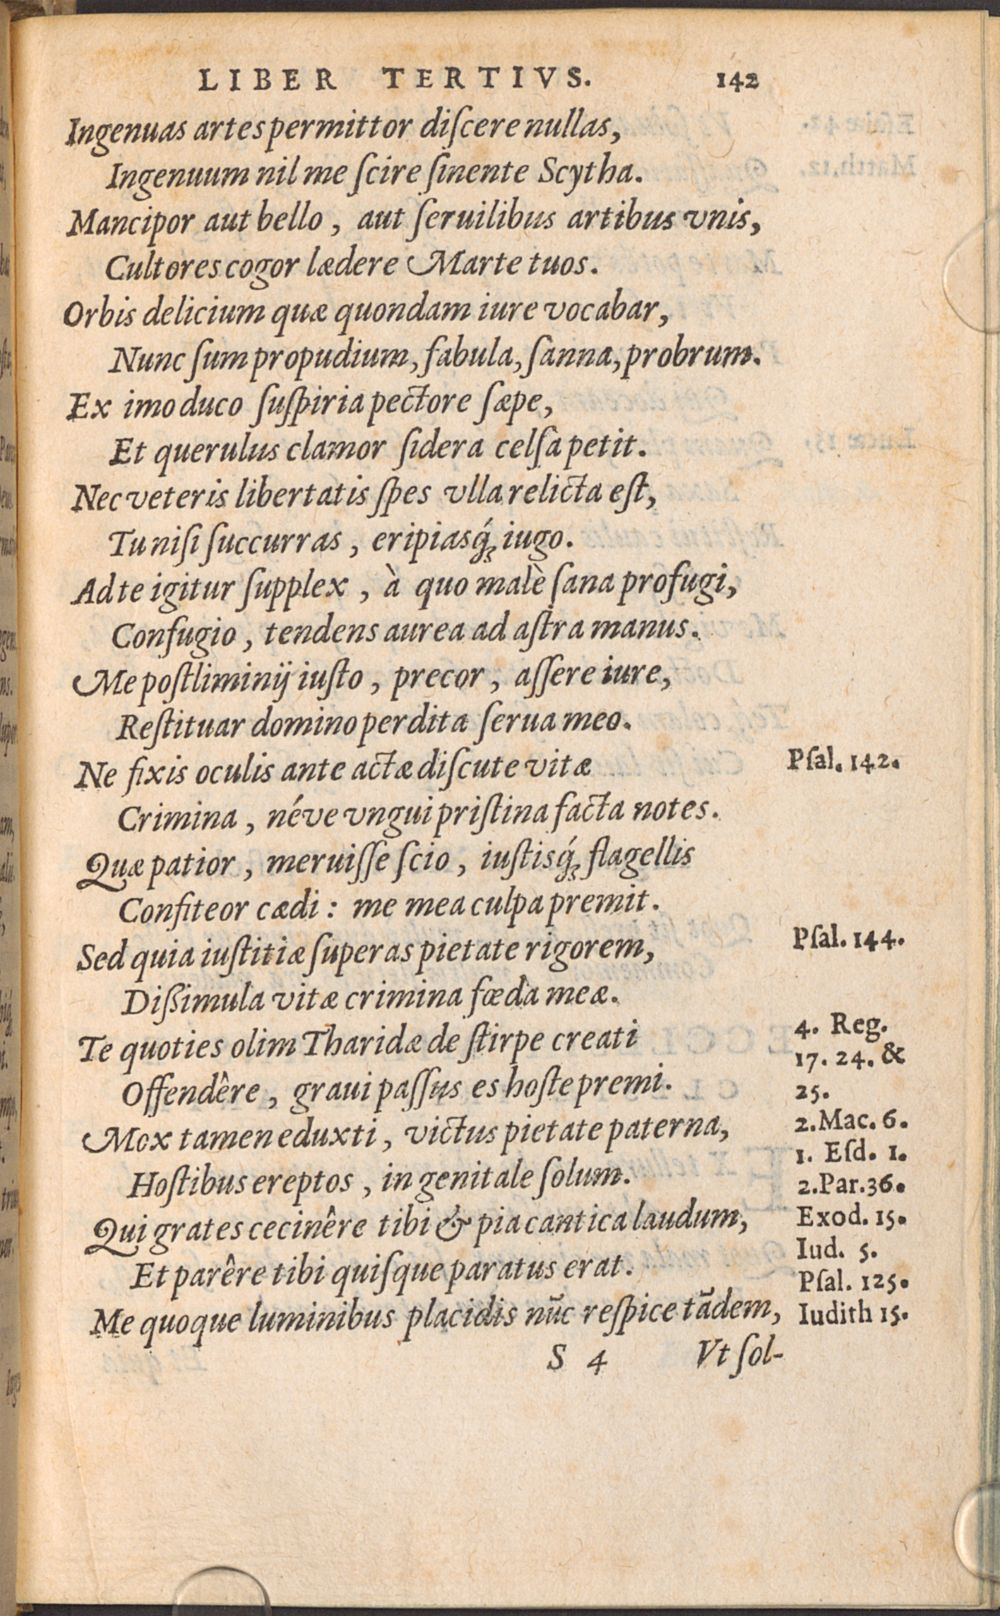 LIBER TERTIVS. 142
Ingenuas artes permittor diſcere nullas,
Ingenuum nil me ſcire ſinente Scytha.
Mancipor aut bello, aut ſeruilibus artibus vnis,
Cultores cogor lædere Marte tuos.
Orbis delicium quæ quondam iure vocabar,
Nunc ſum propudium, fabula, ſanna, probrum.
Ex imo duco ſuſpiria pectore ſæpe,
Et querulus clamor ſidera celſa petit.
Nec veteris libertatis ſpes vlla relicta eſt,
Tu niſi ſuccurras, eripiasq́; iugo.
Ad te igitur ſupplex, à quo malè ſana profugi,
Confugio, tendens aurea ad aſtra manus.
Me poſtliminij iuſto, precor, aſſere iure,
Reſtituar domino perdita ſerua meo.
Ne fixis oculis ante actæ diſcute vitæ Pſal. 142.
Crimina, néve vngui priſtina facta notes.
Quæ patior, meruiſſe ſcio, iuſtisq́; flagellis
Confiteor cædi: me mea culpa premit.
Sed quia iuſtitiæ ſuperas pietate rigorem, Pſal. 144.
Dißimula vitæ crimina fœda meæ.
Te quoties olim Tharidæ de ſtirpe creati 4. Reg.
17. 24. &
Offendêre, graui paſſus es hoſte premi. 25.
Mox tamen eduxti, victus pietate paterna, 2. Mac. 6.
1. Eſd. 1.
Hoſtibus ereptos, in genitale ſolum. 2. Par. 36.
Qui grates cecinêre tibi & pia cantica laudum, Exod. 15.
Iud. 5.
Et parêre tibi quiſque paratus erat. Pſal. 125.
Me quoque luminibus placidis nūc reſpice tādem, Iudith 15.
S 4 Vt ſol-